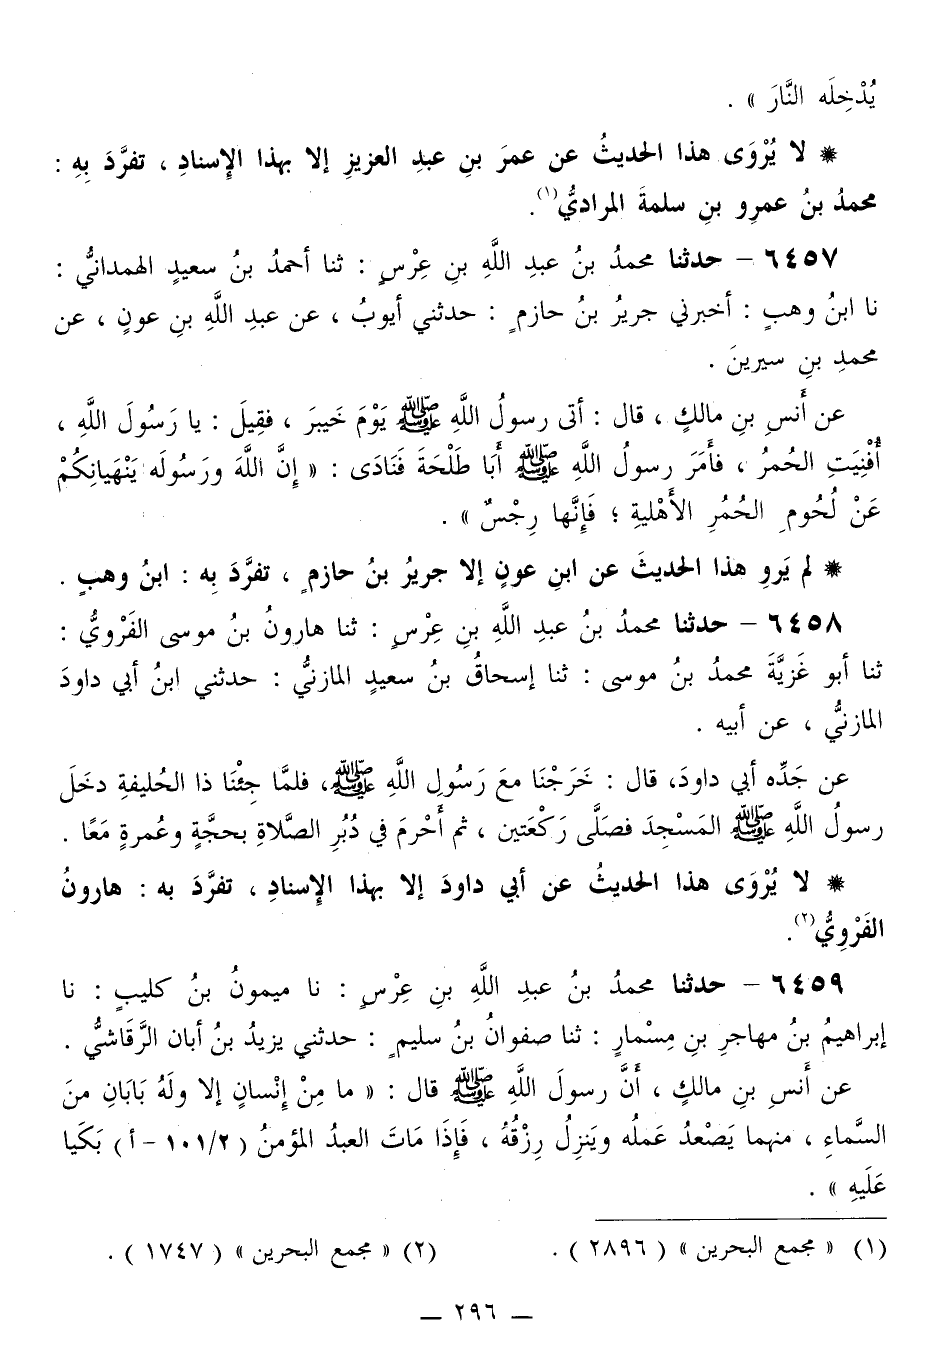 يُدْخِلَه النَّارَ » .
* لا يُرْوَى هذا الحديثُ عن عمرَ بنِ عبدِ العزيزِ إلا بهذا الإِسنادِ ، تفرَّدَ بِهِ :
محمدُ بنُ عمرِو بنِ سلمةَ المراديُّ(١).
٦٤٥٧ – حدثنا محمدُ بنُ عبدِ اللَّهِ بنِ عِرْسٍ : ثنا أحمدُ بنُ سعيدٍ الهمدانيُّ :
نا ابنُ وهبٍ : أخبرني جريرُ بنُ حازمٍ : حدثني أيوبُ ، عن عبدِ اللَّهِ بنِ عونٍ ، عن
محمدِ بنِ سيرينَ .
عن أَنسِ بنِ مالكٍ ، قال : أتى رسولُ اللَّهِ ﷺ يَوْمَ خَيبرَ ، فقِيلَ : يا رَسُولَ اللَّهِ ،
أُفْنِيَتِ الحُمرُ ، فأَمَرَ رسولُ اللَّهِ ﷺ أَبَا طَلْحَةَ فَنَادَى : « إِنَّ اللَّهَ ورَسُولَه يَنْهَيانِكُمْ
عَنْ لُحُومِ الحُمُرِ الأَهْليةِ ؛ فَإِنَّها رِجْسٌ » .
* لم يَروِ هذا الحديثَ عن ابنِ عونٍ إلا جريرُ بنُ حازمٍ ، تفرَّدَ بِه : ابنُ وهبٍ .
٦٤٥٨ – حدثنا محمدُ بنُ عبدِ اللَّهِ بنِ عِرْسٍ : ثنا هارونُ بنُ موسى الفَرْويُّ :
ثنا أبو غَزِيَّةَ محمدُ بنُ موسى : ثنا إسحاقُ بنُ سعيدٍ المازنيُّ : حدثني ابنُ أبي داودَ
المازنيُّ ، عن أبيه .
عن جَدِّه أبي داودَ، قال : خَرَجْنَا معَ رَسُولِ اللَّهِ ﷺ، فلمَّا جِئْنَا ذا الحُليفةِ دخَلَ
رسولُ اللَّهِ ﷺ المَسْجِدَ فصَلَّى رَكْعَتين ، ثم أَحْرمَ في دُبُرِ الصَّلاةِ بحجَّةٍ وعُمرةٍ مَعًا .
* لا يُرْوَى هذا الحديثُ عن أبي داودَ إلا بهذا الإِسنادِ ، تفرَّدَ به : هارونُ
الفَرْوِيُّ(٢).
٦٤٥٩ – حدثنا محمدُ بنُ عبدِ اللَّهِ بنِ عِرْسٍ : نا ميمونُ بنُ كليبٍ : نا
إبراهيمُ بنُ مهاجرِ بنِ مِسْمارٍ : ثنا صفوانُ بنُ سليمٍ : حدثني يزيدُ بنُ أبان الرَّقَاشيُّ .
عن أَنسِ بنِ مالكٍ ، أَنَّ رسولَ اللَّهِ ﷺ قال : « ما مِنْ إِنْسانٍ إلا ولَهُ بَابَانِ منَ
السَّماءِ ، منهما يَصْعدُ عَملُه ويَنزِلُ رِزْقُهُ ، فَإِذَا مَاتَ العبدُ المؤمنُ (١٠١/٢ - أ) بَكَيا
عَلَيهِ » .
(١) « مجمع البحرين » (٢٨٩٦) . (٢) « مجمع البحرين » (١٧٤٧) .
— ٢٩٦ —